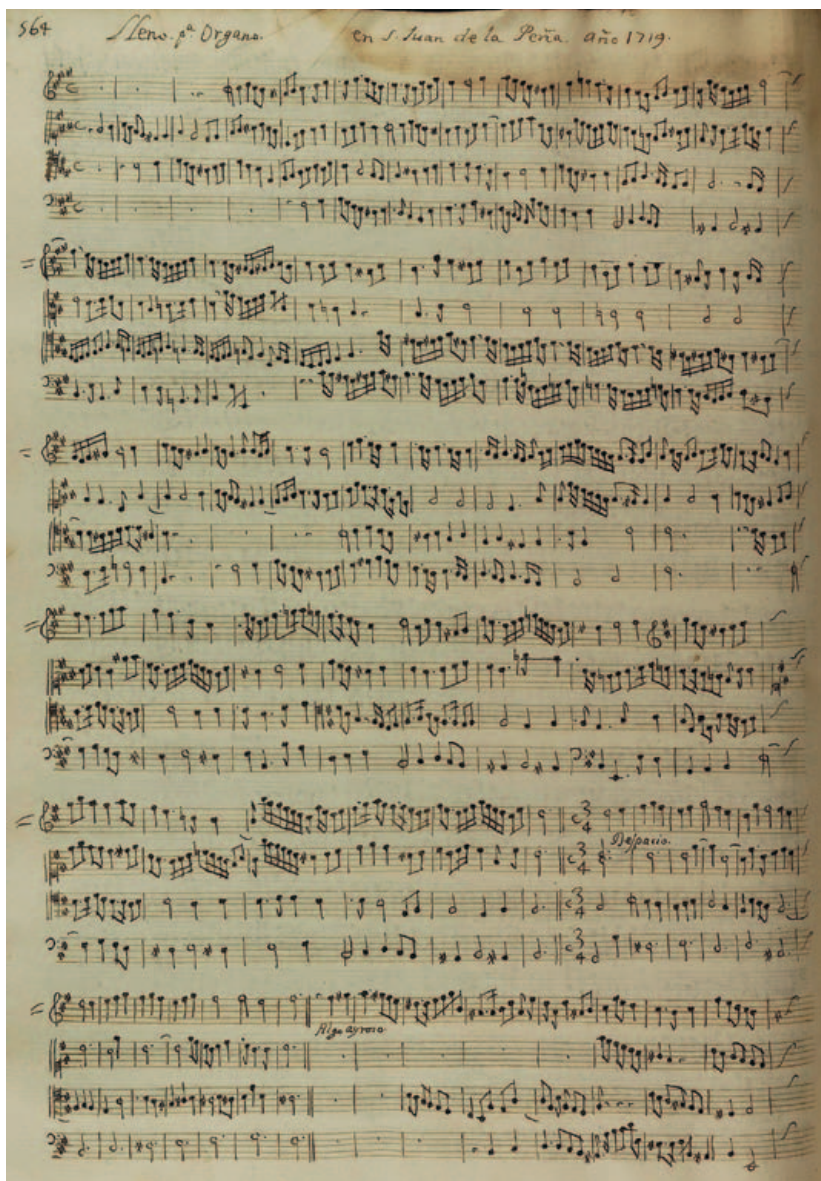 564 Lleno. pª. Organo. en S. Juan de la Peña. año 1719.
Despacio.
Algo ayroso